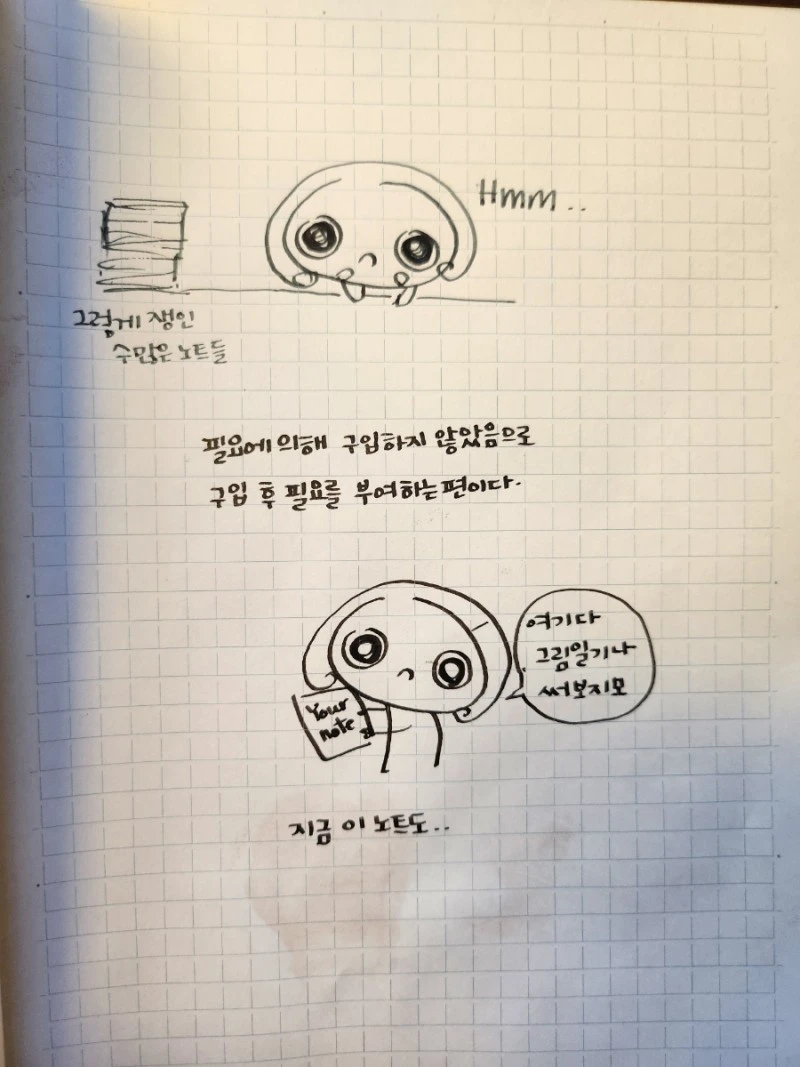 Hmm..
그렇게 쟁인
수많은 노트들
필요에 의해 구입하지 않았음으로
구입 후 필요를 부여하는 편이다.
여기다
그림일기나
써보지모
Your
note
지금 이 노트도..